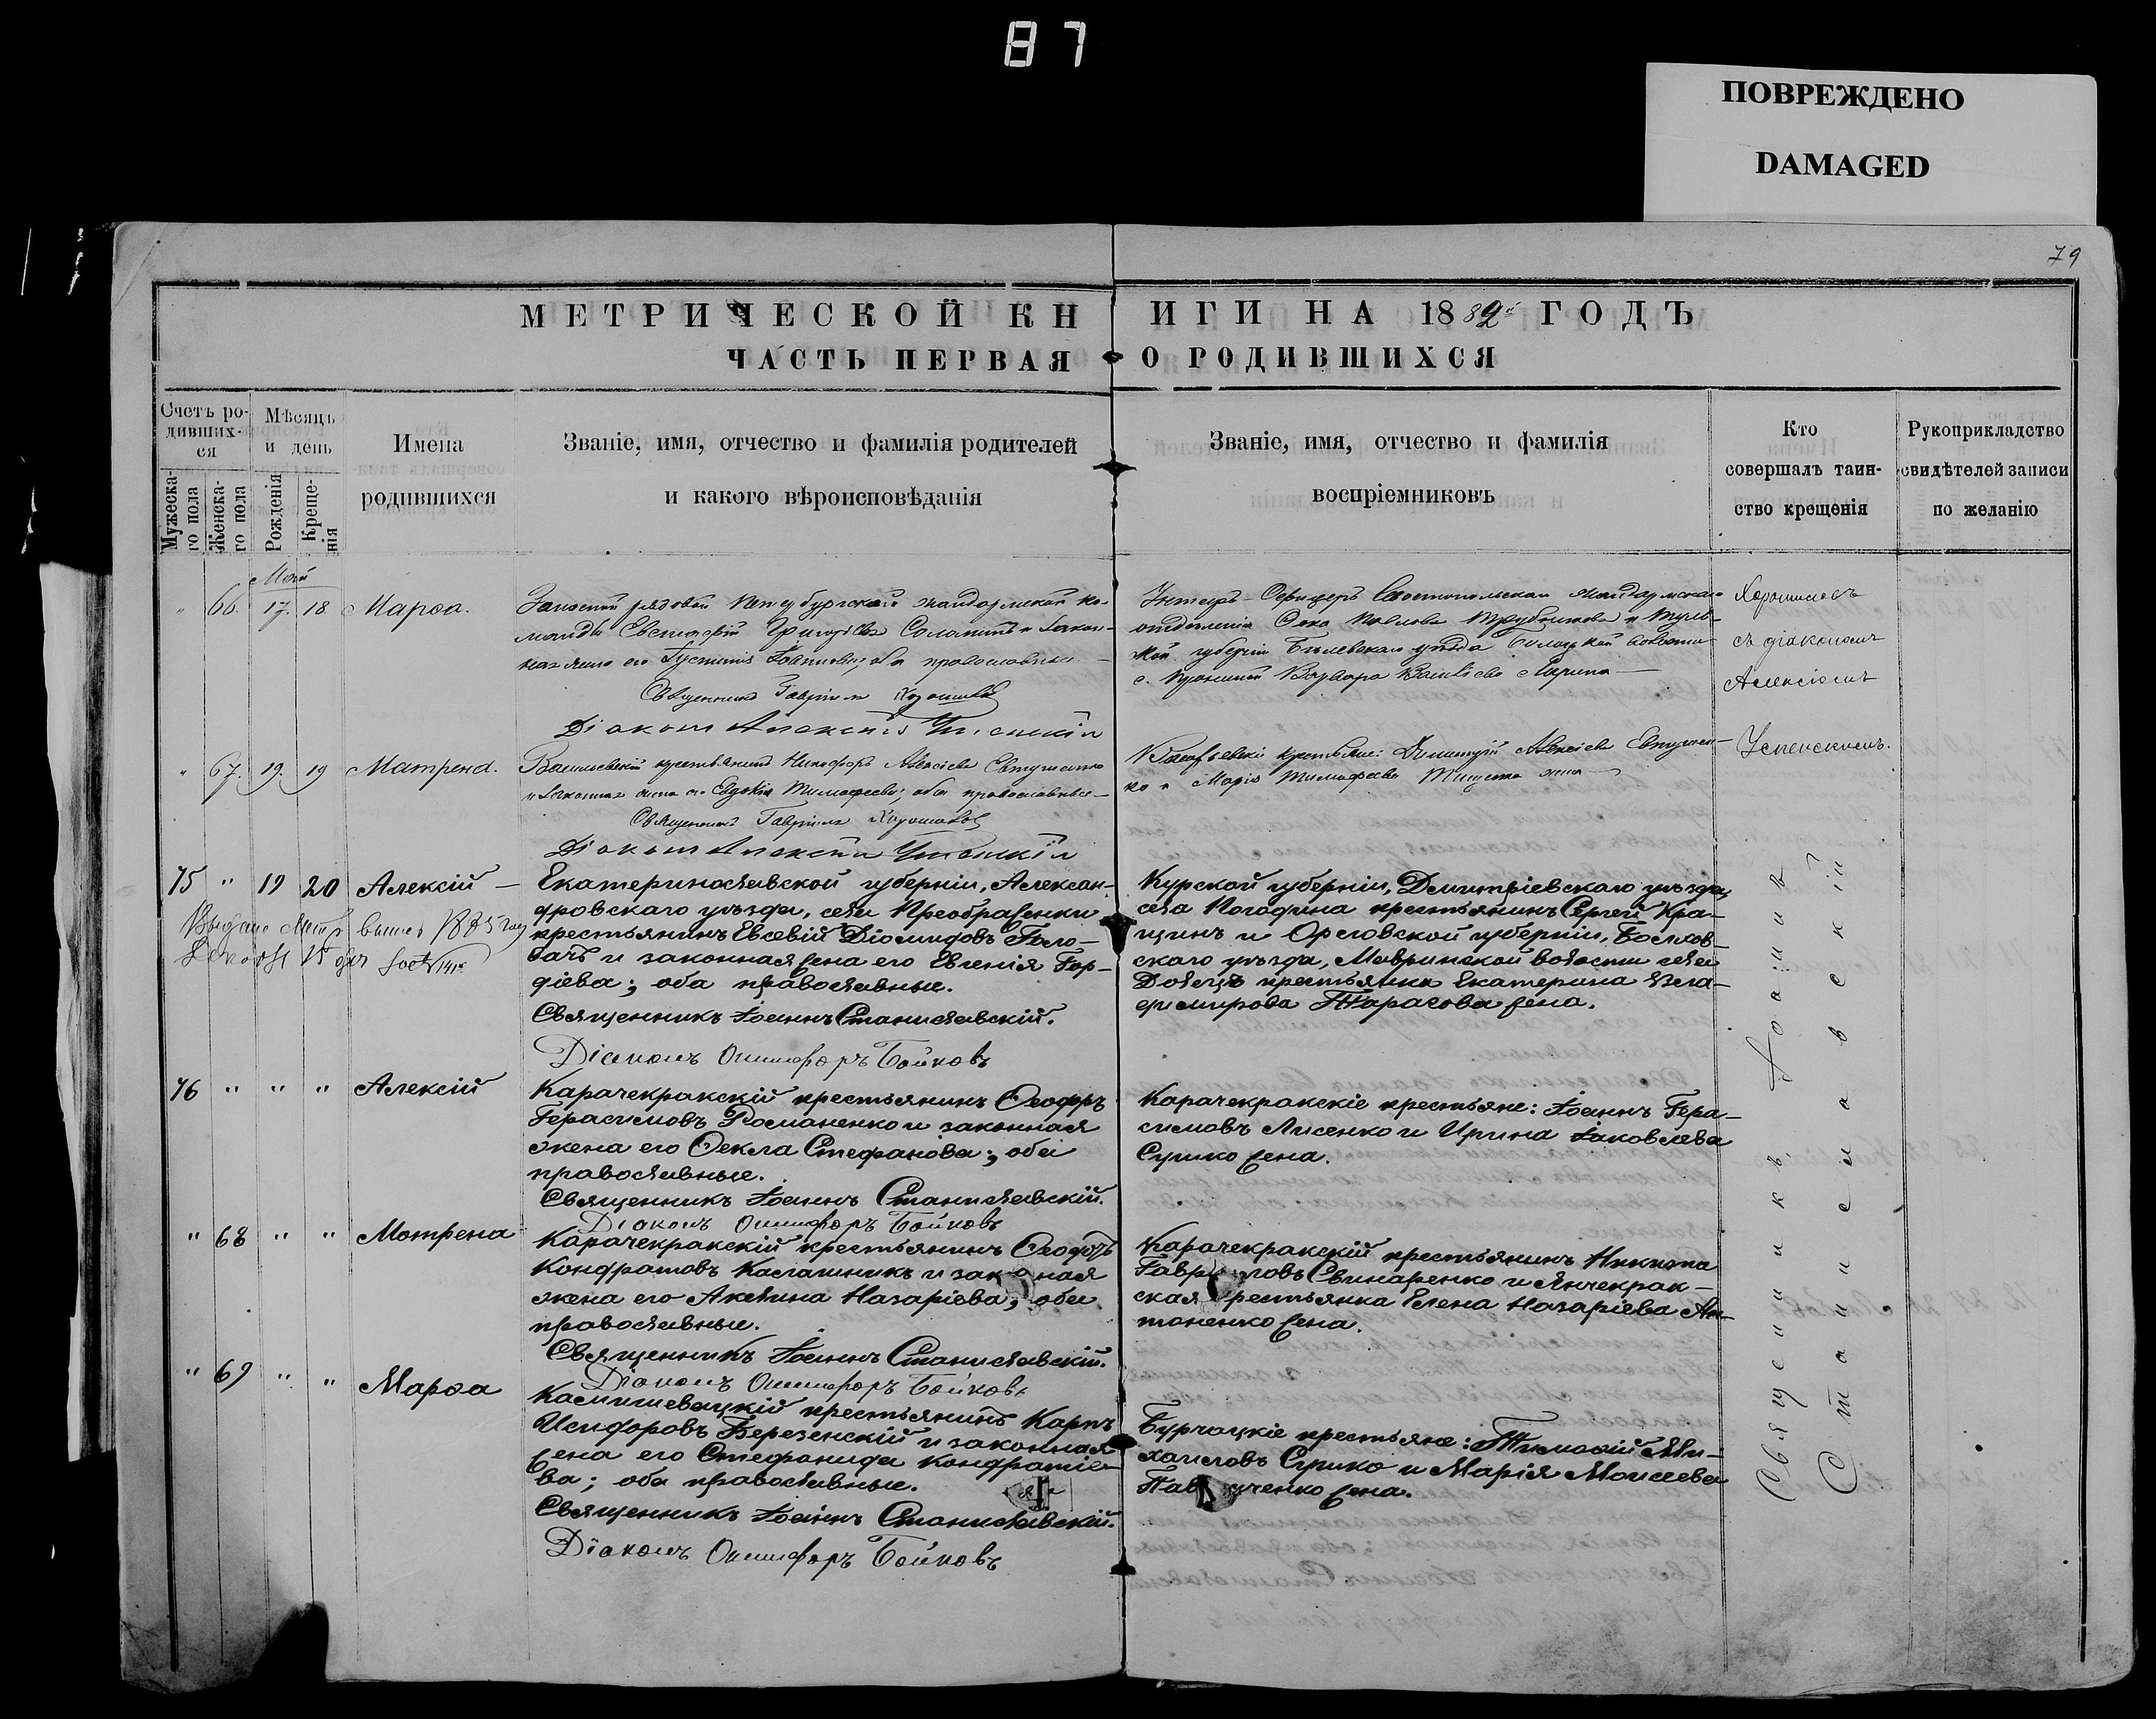 87
ПОВРЕЖДЕНО
DAMAGED
79
МЕТРИЧЕСКОЙ КНИГИ НА 1882й ГОДЪ
ЧАСТЬ ПЕРВАЯ О РОДИВШИХСЯ
Счетъ ро-
дивших-
ся
Мужеска-
го пола
Женска-
го пола
Мѣсяцъ
и день
Рожденія
Креще-
нія
Имена
родившихся
Званіе, имя, отчество и фамилія родителей
и какого вѣроисповѣданія
Званіе, имя, отчество и фамилія
воспріемниковъ
Кто
совершалъ таин-
ство крещенія
Рукоприкладство
свидѣтелей записи
по желанію
Май
" 66. 17. 18 Марѳа.
Запасный рядовой Петербургской жандармской ко-
манды Евстафій Григоріевъ и закон-
ная жена его Іустинія Іоаннова; оба православные
Священникъ Гавріилъ Хорошковъ
Діаконъ Алексій Успенскій
Унтеръ-Офицеръ жандармскаго
отдѣленія Ѳока Павловъ Трубников и Туль-
ской губерніи Бѣлевскаго уѣзда волости
с. Варвара Василіева
Хорошковъ
съ діакономъ
Алексіемъ
" 67. 19. 19 Матрена.
Васильевскій крестьянинъ Никифоръ Алексіевъ Евтушенко
и законная жена его Евдокія Тимофеева; оба православные
Священникъ Гавріилъ Хорошковъ
Діаконъ Алексій Успенскій
Васильевскіе крестьяне: Димитрій Алексіевъ Евтушен-
ко и Марія Тимофеева жена
Успенскимъ.
75 " 19 20 Алексій
Выдано 1885 году
Екатеринославской губерніи, Алексан-
дровскаго уѣзда, села Преображенки
крестьянинъ Евсевій Діомидовъ Голо-
бачъ и законная жена его Евгенія Гор-
діева; оба православные.
Священникъ Іоаннъ Станиславскій.
Діаконъ Онисифоръ Бойковъ
Курской губерніи, Дмитріевскаго уѣзда,
села Погодина крестьянинъ Сергей Кра-
щинъ и Орловской губерніи, Болхов-
скаго уѣзда, волости села
крестьянка Екатерина Вла-
димирова Тарасова жена.
76 " " " Алексій
Карачекракскій крестьянинъ Ѳеодоръ
Герасимовъ Романенко и законная
жена его Ѳекла Стефанова; оба
православные.
Священникъ Іоаннъ Станиславскій.
Діаконъ Онисифоръ Бойковъ
Карачекракскіе крестьяне: Іоаннъ Гера-
симовъ Лисенко и Ирина Іаковлева
Сушко жена.
" 68 " " Матрена
Карачекракскій крестьянинъ Ѳеодотъ
Кондратовъ Калашникъ и законная
жена его Акилина Назаріева; оба
православные.
Священникъ Іоаннъ Станиславскій.
Діаконъ Онисифоръ Бойковъ
Карачекракскій крестьянинъ Никита
Гавриловъ Свинаренко и Янчекрак-
ская крестьянка Елена Назаріева Ан-
тоненко жена.
" 69 " " Марѳа
Камишевацкій крестьянинъ Карпъ
Исидоровъ Березенскій и законная
жена его Стефанида Кондратіе-
ва; оба православные.
Священникъ Іоаннъ Станиславскій.
Діаконъ Онисифоръ Бойковъ
Бурчацкіе крестьяне: Тимоѳій Ми-
хаиловъ Сушко и Марія Моисеева
жена.
Священникъ Іоаннъ
Станиславскій